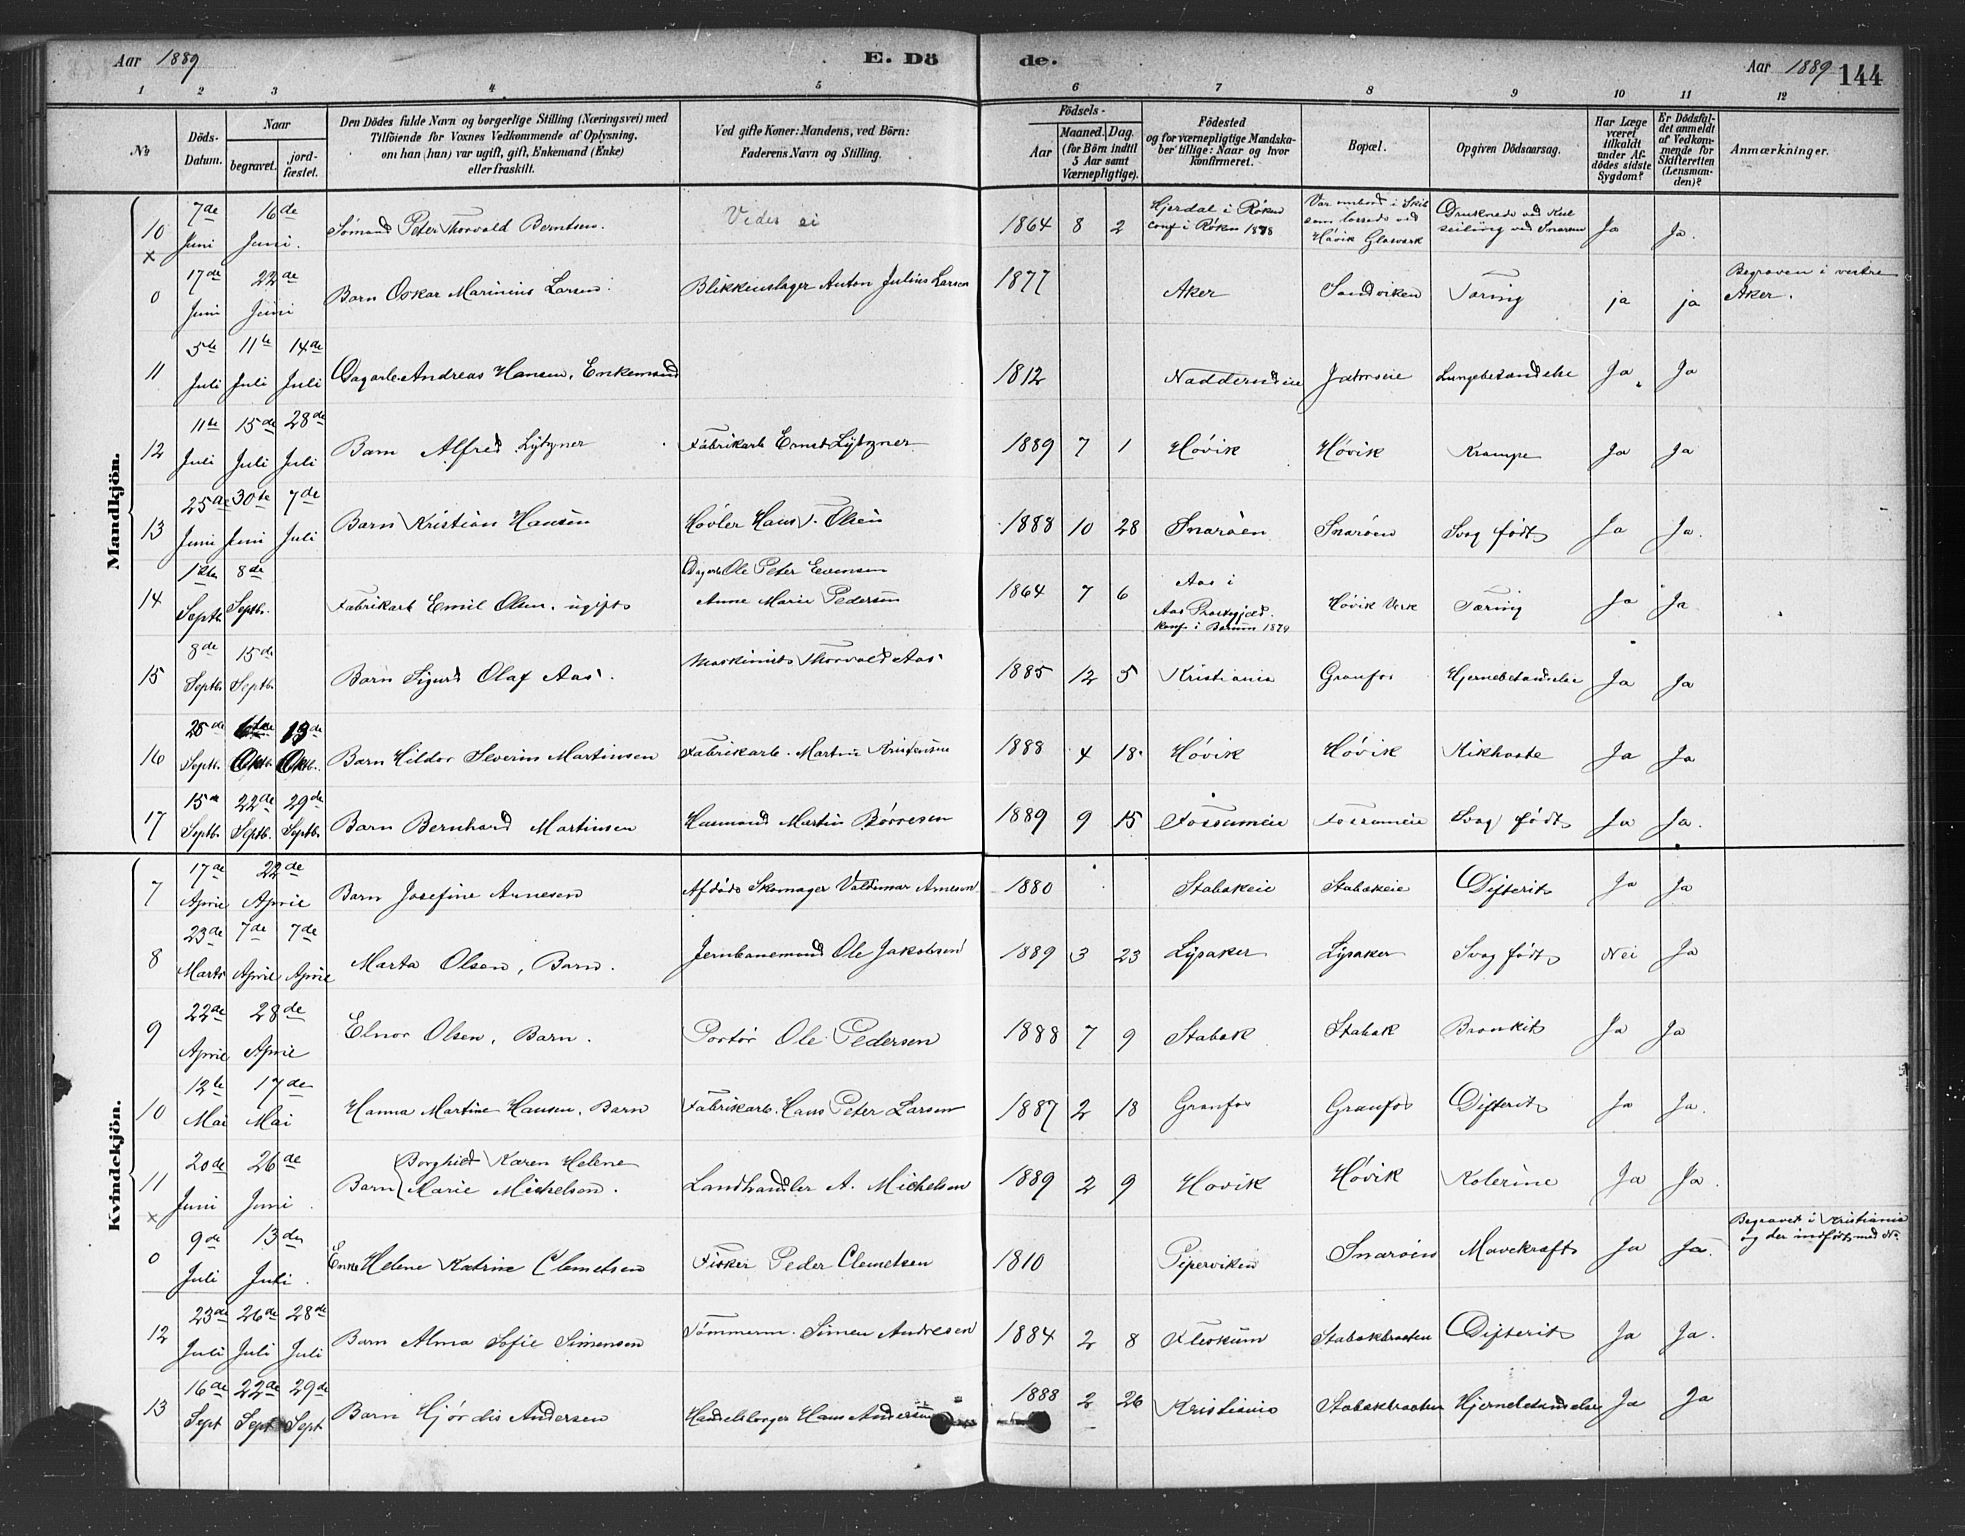 Aar 1889 E. Dö de. Aar 1889 144
1 2 3 4 5 6 7 8 9 10 11 12
No
Döds-Datum.
Naar
begravet.
jord-fæstet.
Den Dödes fulde Navn og borgerlige Stilling (Næringsvei) med
Tilföiende for Voxnes Vedkommende af Oplysning,
om han (hun) var ugift, gift, Enkemand (Enke)
eller fraskilt.
Ved gifte Koner: Mandens, ved Börn:
Faderens Navn og Stilling.
Födsels-
Aar
Maaned. Dag.
(for Börn indtil
5 Aar samt
Værnepligtige).
Födested
og for værnepligtige Mandska-
ber tillige: Naar og hvor
konfirmeret.
Bopæl.
Opgiven Dödsaarsag.
Har Læge
været
tilkaldt
under Af-
dödes sidste
Sygdom?
Er Dödsfal-
det anmeldt
af Vedkom-
mende for
Skifteretten
(Lensman-
den)?
Anmærkninger.
Mandkjön.
10 x 7de Juni 16de Juni. Sömand Peter Thorvald Berntsen. Vides ei 1864 8 2 Hjerdal i Röken conf i Röken 1878 Var ombord i Skib som lossede ved Hövik Glasværk Druknede ved Kulseiling ved Snaröen Ja Ja.
0 17de Juni 22de Juni Barn Oskar Marinius Larsen. Blikkenslager Anton Julius Larsen 1877 Aker Sandviken Tæring ja ja Begraven i vestre Aker.
11 5te Juli 11te Juli 14de Juli Dagarb. Andreas Hansen, Enkemand 1812 Jatorseie Lungebetændelse Ja Ja
12 11te Juli 15de Juli 28de Juli Barn Alfred Lytzner Fabrikarb Ernst Lytzner 1889 7 1 Hövik Hövik Krampe Ja Ja
13 25de Juni 30te Juni 7de Juli Barn Kristian Hansen Hövler Hans T. Olsen 1888 10 28 Snaröen Snaröen Svag födt Ja Ja.
14 1ste Septb. 8de Septb. Fabrikarb Emil Olsen, ugift Dagarb Ole Peter Evensen Anne Marie Pedersen 1864 7 6 Aas i Aas Prestegjæld. Konf. i Bærum 1879 Hövik Verk Tæring Ja Ja
15 8de Septb. 15de Septb. Barn Sigurd Olaf Aas. Maskinist Thorvald Aas 1885 12 5 Kristiania Granfos Hjernebetændelse Ja Ja
16 25de Septb. 6te Oktb. 13de Oktb. Barn Hildor Severin Martinsen Fabrikarb. Martin Kristensen 1888 4 18 Hövik Hövik Kikhoste Ja Ja
17 15de Septb. 22de Septb. 29de Septb. Barn Bernhard Martinsen Husmand Martin Börresen 1889 9 15 Fossumeie Fossumeie Svag födt Ja Ja.
Kvindekjön.
7 17de April 22de April Barn Josefine Arnesen Afdöde Skomager Valdimar Arnesen 1880 Stabakeie Stabakeie Difterit Ja Ja
8 23de Marts 7de April 7de April Marta Olsen, Barn. Jernbanemand Ole Jakobsen 1889 3 23 Lysaker Lysaker Svag födt Nei Ja
9 22de April 28de April Elnor Olsen, Barn. Portör Ole Pedersen 1888 7 9 Stabæk Stabæk Bronkit Ja Ja
10 12te Mai 17de Mai Hanna Martine Hansen, Barn Fabrikarb. Hans Peter Larsen 1887 2 18 Granfos Granfos Difterit Ja Ja.
11 x 20de Juni 26de Juni Barn Borghild Karen Helene Marie Michelson. Landhandler A. Michelson 1889 2 9 Hövik Hövik Kolerine Ja Ja.
0 9de Juli 13de Juli. Enke Helene Katrine Clemetsen Fisker Peder Clemetsen 1810 Piperviken Snaröen Mavekræft Ja Ja. Begravet i Kristiania og der indfört med No
12 23de Juli 26de Juli 28de Juli Barn Alma Sofie Simensen Tömmerm. Simen Andresen 1884 2 8 Fleskum Stabækbraaten Difterit Ja Ja.
13 16de Sept 22de Sept 29de Sept Barn Hjördis Andersen Handelsborger Hans Andersen 1888 2 26 Kristiania Stabækbraaten Hjernebetændelse Ja Ja